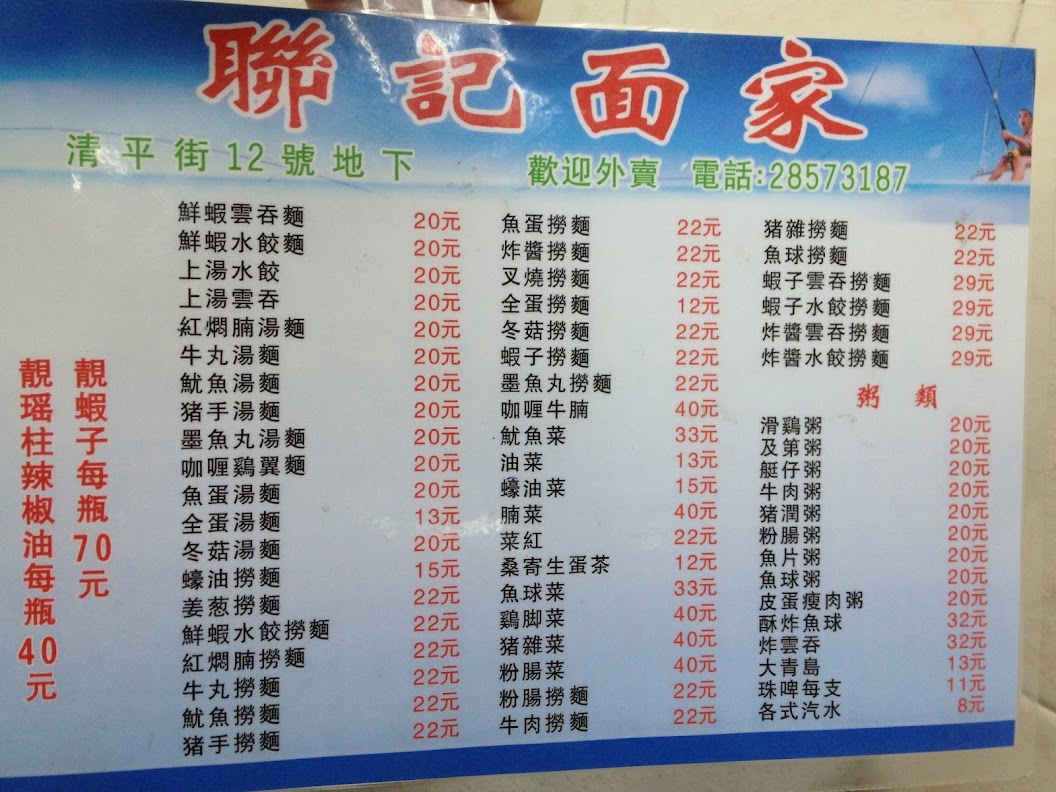 聯記面家
清平街12號地下
歡迎外賣 電話:28573187
靚蝦子每瓶70元
靚瑶柱辣椒油每瓶40元
鮮蝦雲吞麵 20元
鮮蝦水餃麵 20元
上湯水餃 20元
上湯雲吞 20元
紅燜腩湯麵 20元
牛丸湯麵 20元
魷魚湯麵 20元
猪手湯麵 20元
墨魚丸湯麵 20元
咖喱鷄翼麵 20元
魚蛋湯麵 20元
全蛋湯麵 13元
冬菇湯麵 20元
蠔油撈麵 15元
姜葱撈麵 22元
鮮蝦水餃撈麵 22元
紅燜腩撈麵 22元
牛丸撈麵 22元
魷魚撈麵 22元
猪手撈麵 22元
魚蛋撈麵 22元
炸醬撈麵 22元
叉燒撈麵 22元
全蛋撈麵 12元
冬菇撈麵 22元
蝦子撈麵 22元
墨魚丸撈麵 22元
咖喱牛腩 40元
魷魚菜 33元
油菜 13元
蠔油菜 15元
腩菜 40元
菜紅 22元
桑寄生蛋茶 12元
魚球菜 33元
鷄脚菜 40元
猪雜菜 40元
粉腸菜 40元
粉腸撈麵 22元
牛肉撈麵 22元
猪雜撈麵 22元
魚球撈麵 22元
蝦子雲吞撈麵 29元
蝦子水餃撈麵 29元
炸醬雲吞撈麵 29元
炸醬水餃撈麵 29元
粥 類
滑鷄粥 20元
及第粥 20元
艇仔粥 20元
牛肉粥 20元
猪潤粥 20元
粉腸粥 20元
魚片粥 20元
魚球粥 20元
皮蛋瘦肉粥 20元
酥炸魚球 32元
炸雲吞 32元
大青島 13元
珠啤每支 11元
各式汽水 8元